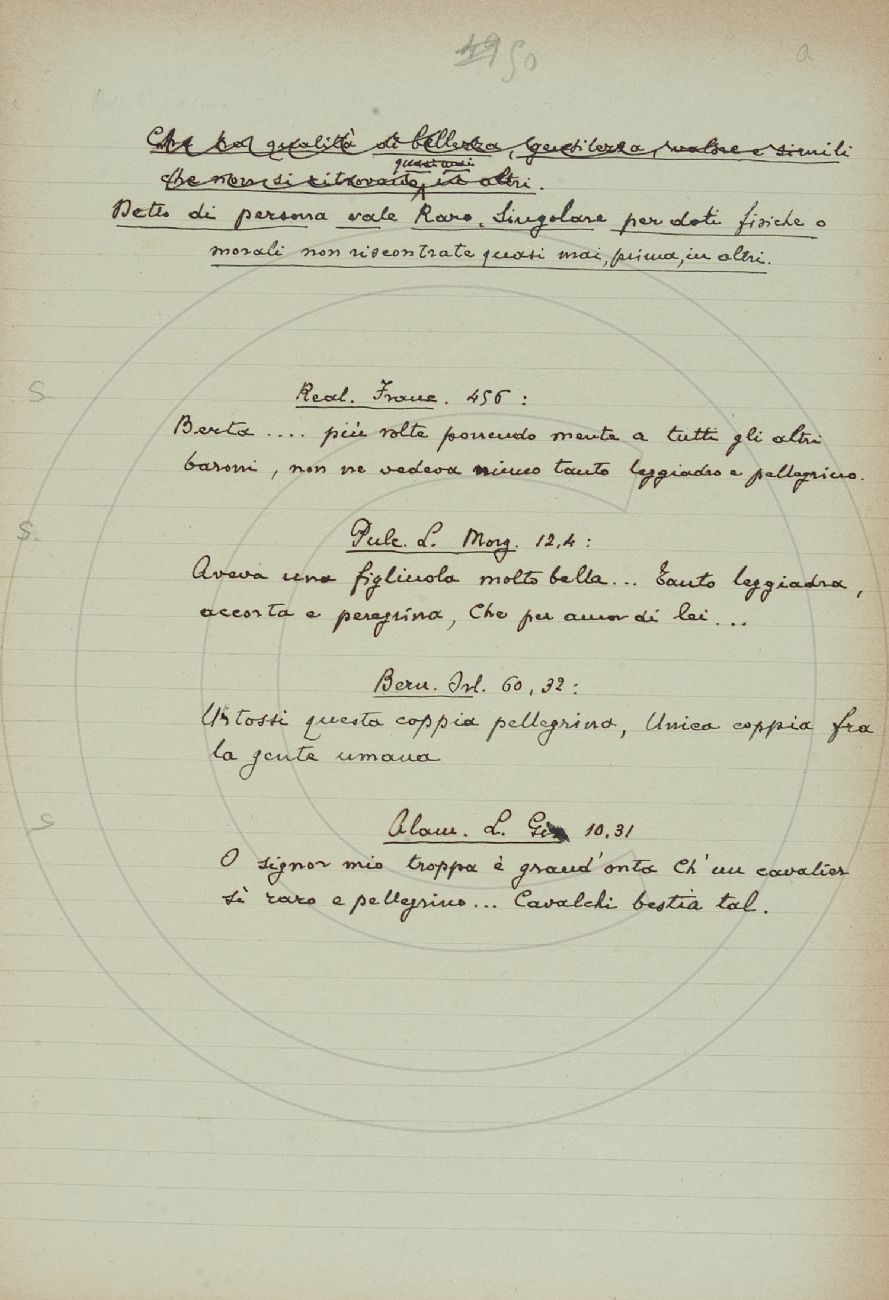 49 50 a
Che ha qualità di bellezza, gentilezza, valore e simili
quasi mai
che non si ritrovano in altri.
Detto di persona vale Raro, Singolare per doti fisiche o
morali non riscontrate quasi mai, prima, in altri.
S Real. Franc. 456 :
Berta .... più volte ponendo mente a tutti gli altri
baroni, non ne vedeva niuno tanto leggiadro e pellegrino.
S. Pulc. L. Morg. 12,4 :
Aveva una figliuola molto bella... Tanto leggiadra,
accorta e peregrina, Che per amor di lei...
Bern. Orl. 60, 32 :
Urtossi questa coppia pellegrina, Unica coppia fra
la gente umana
S Alam. L. Gir 10,31
O signor mio troppa è grand'onta Ch'un cavalier
sì raro e pellegrino... Cavalchi bestia tal.